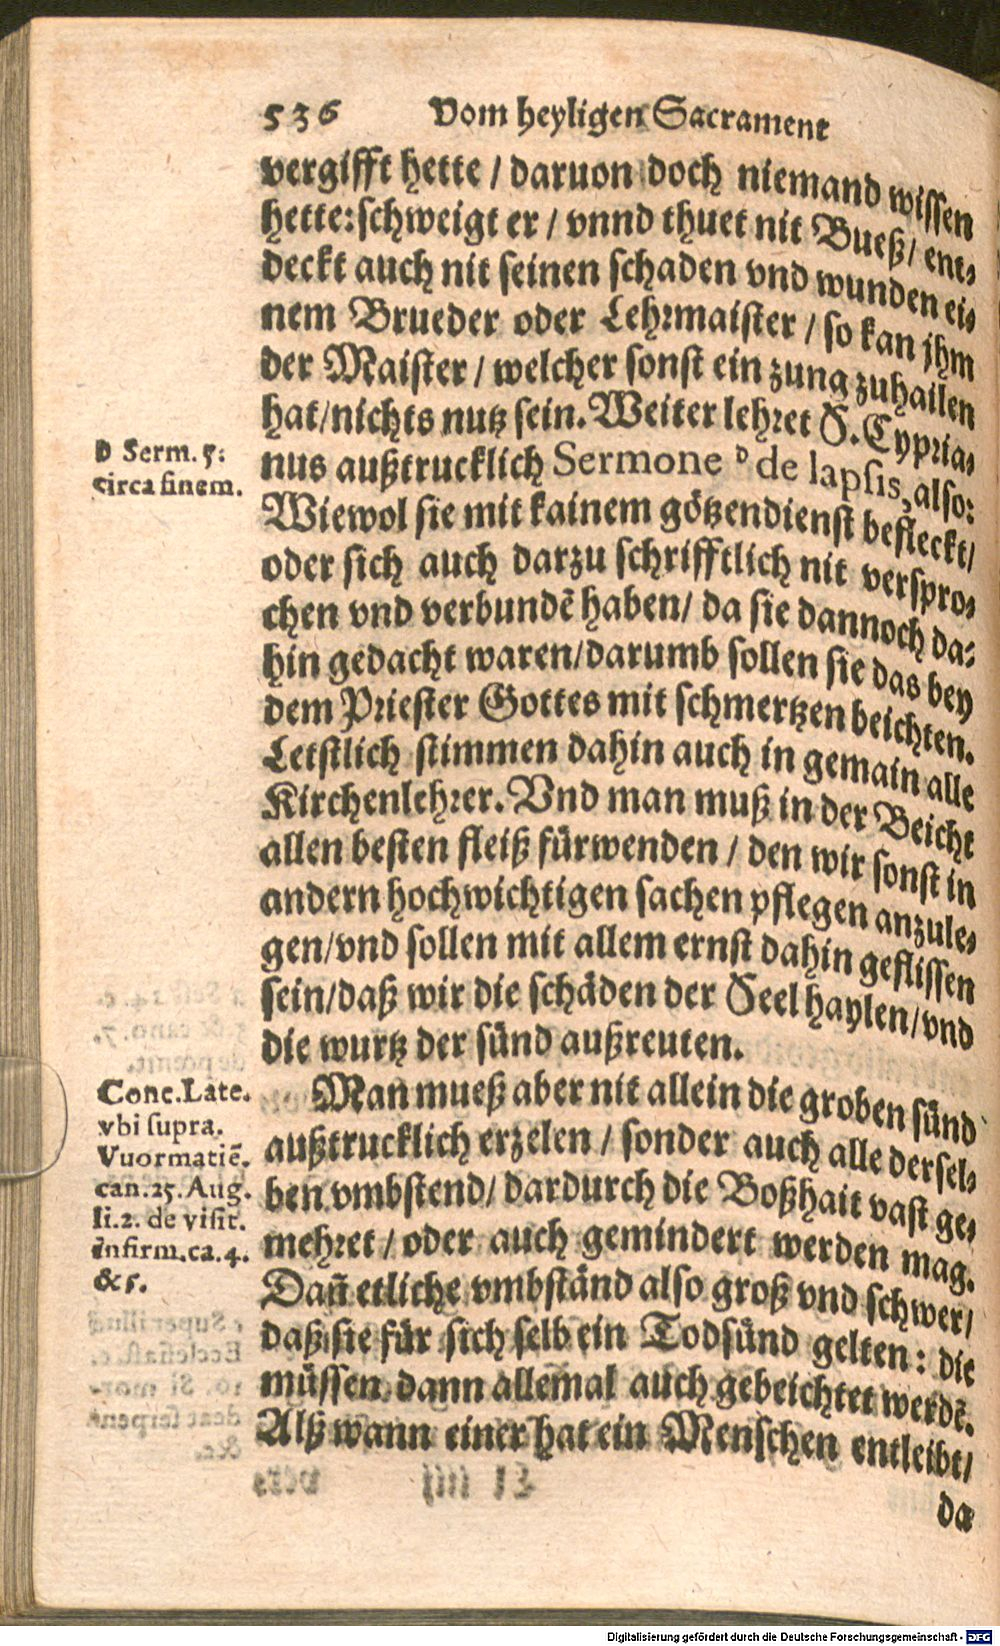 536 Vom heyligen Sacrament
vergifft hette / daruon doch niemand wissen
hette: schweigt er / vnnd thuet nit Bueß / ent⸗
deckt auch nit seinen schaden vnd wunden ei⸗
nem Brueder oder Lehrmaister / so kan jhm
der Maister / welcher sonst ein zung zuhailen
hat / nichts nutz sein. Weiter lehret S. Cypria⸗
nus außtrucklich Sermone ᴰ de lapsis, also:
Wiewol sie mit kainem götzendienst befleckt /
oder sich auch darzu schrifftlich nit verspro⸗
chen vnd verbundē haben / da sie dannoch da⸗
hin gedacht waren / darumb sollen sie das bey
dem Priester Gottes mit schmertzen beichten.
Letstlich stimmen dahin auch in gemain alle
Kirchenlehrer. Vnd man muß in der Beicht
allen besten fleiß fürwenden / den wir sonst in
andern hochwichtigen sachen pflegen anzule⸗
gen / vnd sollen mit allem ernst dahin geflissen
sein / daß wir die schäden der Seel haylen / vnd
die wurtz der sünd außreuten.
Man mueß aber nit allein die groben sünd
außtrucklich erzelen / sonder auch alle dersel⸗
ben vmbstend / dardurch die Boßhait vast ge⸗
mehret / oder auch gemindert werden mag.
Dañ etliche vmbständ also groß vnd schwer /
daß sie für sich selb ein Todsünd gelten: die
müssen dann allemal auch gebeichtet werdē.
Alß wann einer hat ein Menschen entleibt /
da
D Serm. 5:
circa finem.
Conc. Late.
vbi supra.
Vuormatiē.
can. 25. Aug.
li. 2. de visit.
infirm. ca. 4.
& 5.
Digitalisierung gefördert durch die Deutsche Forschungsgemeinschaft - DFG